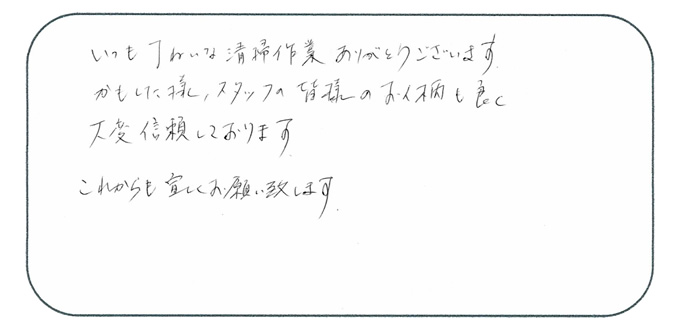 いつも丁ねいな清掃作業ありがとうございます.
かもした様、スタッフの皆様のお人柄も良く
大変信頼しております.
これからも宜しくお願い致します.